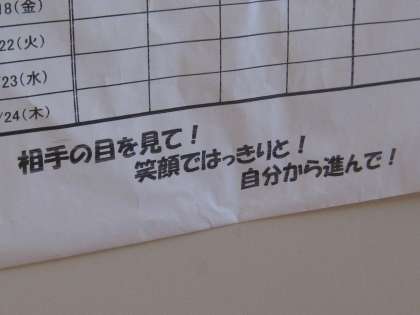 18(金)
/22(火)
/23(水)
/24(木)
相手の目を見て！
笑顔ではっきりと！
自分から進んで！